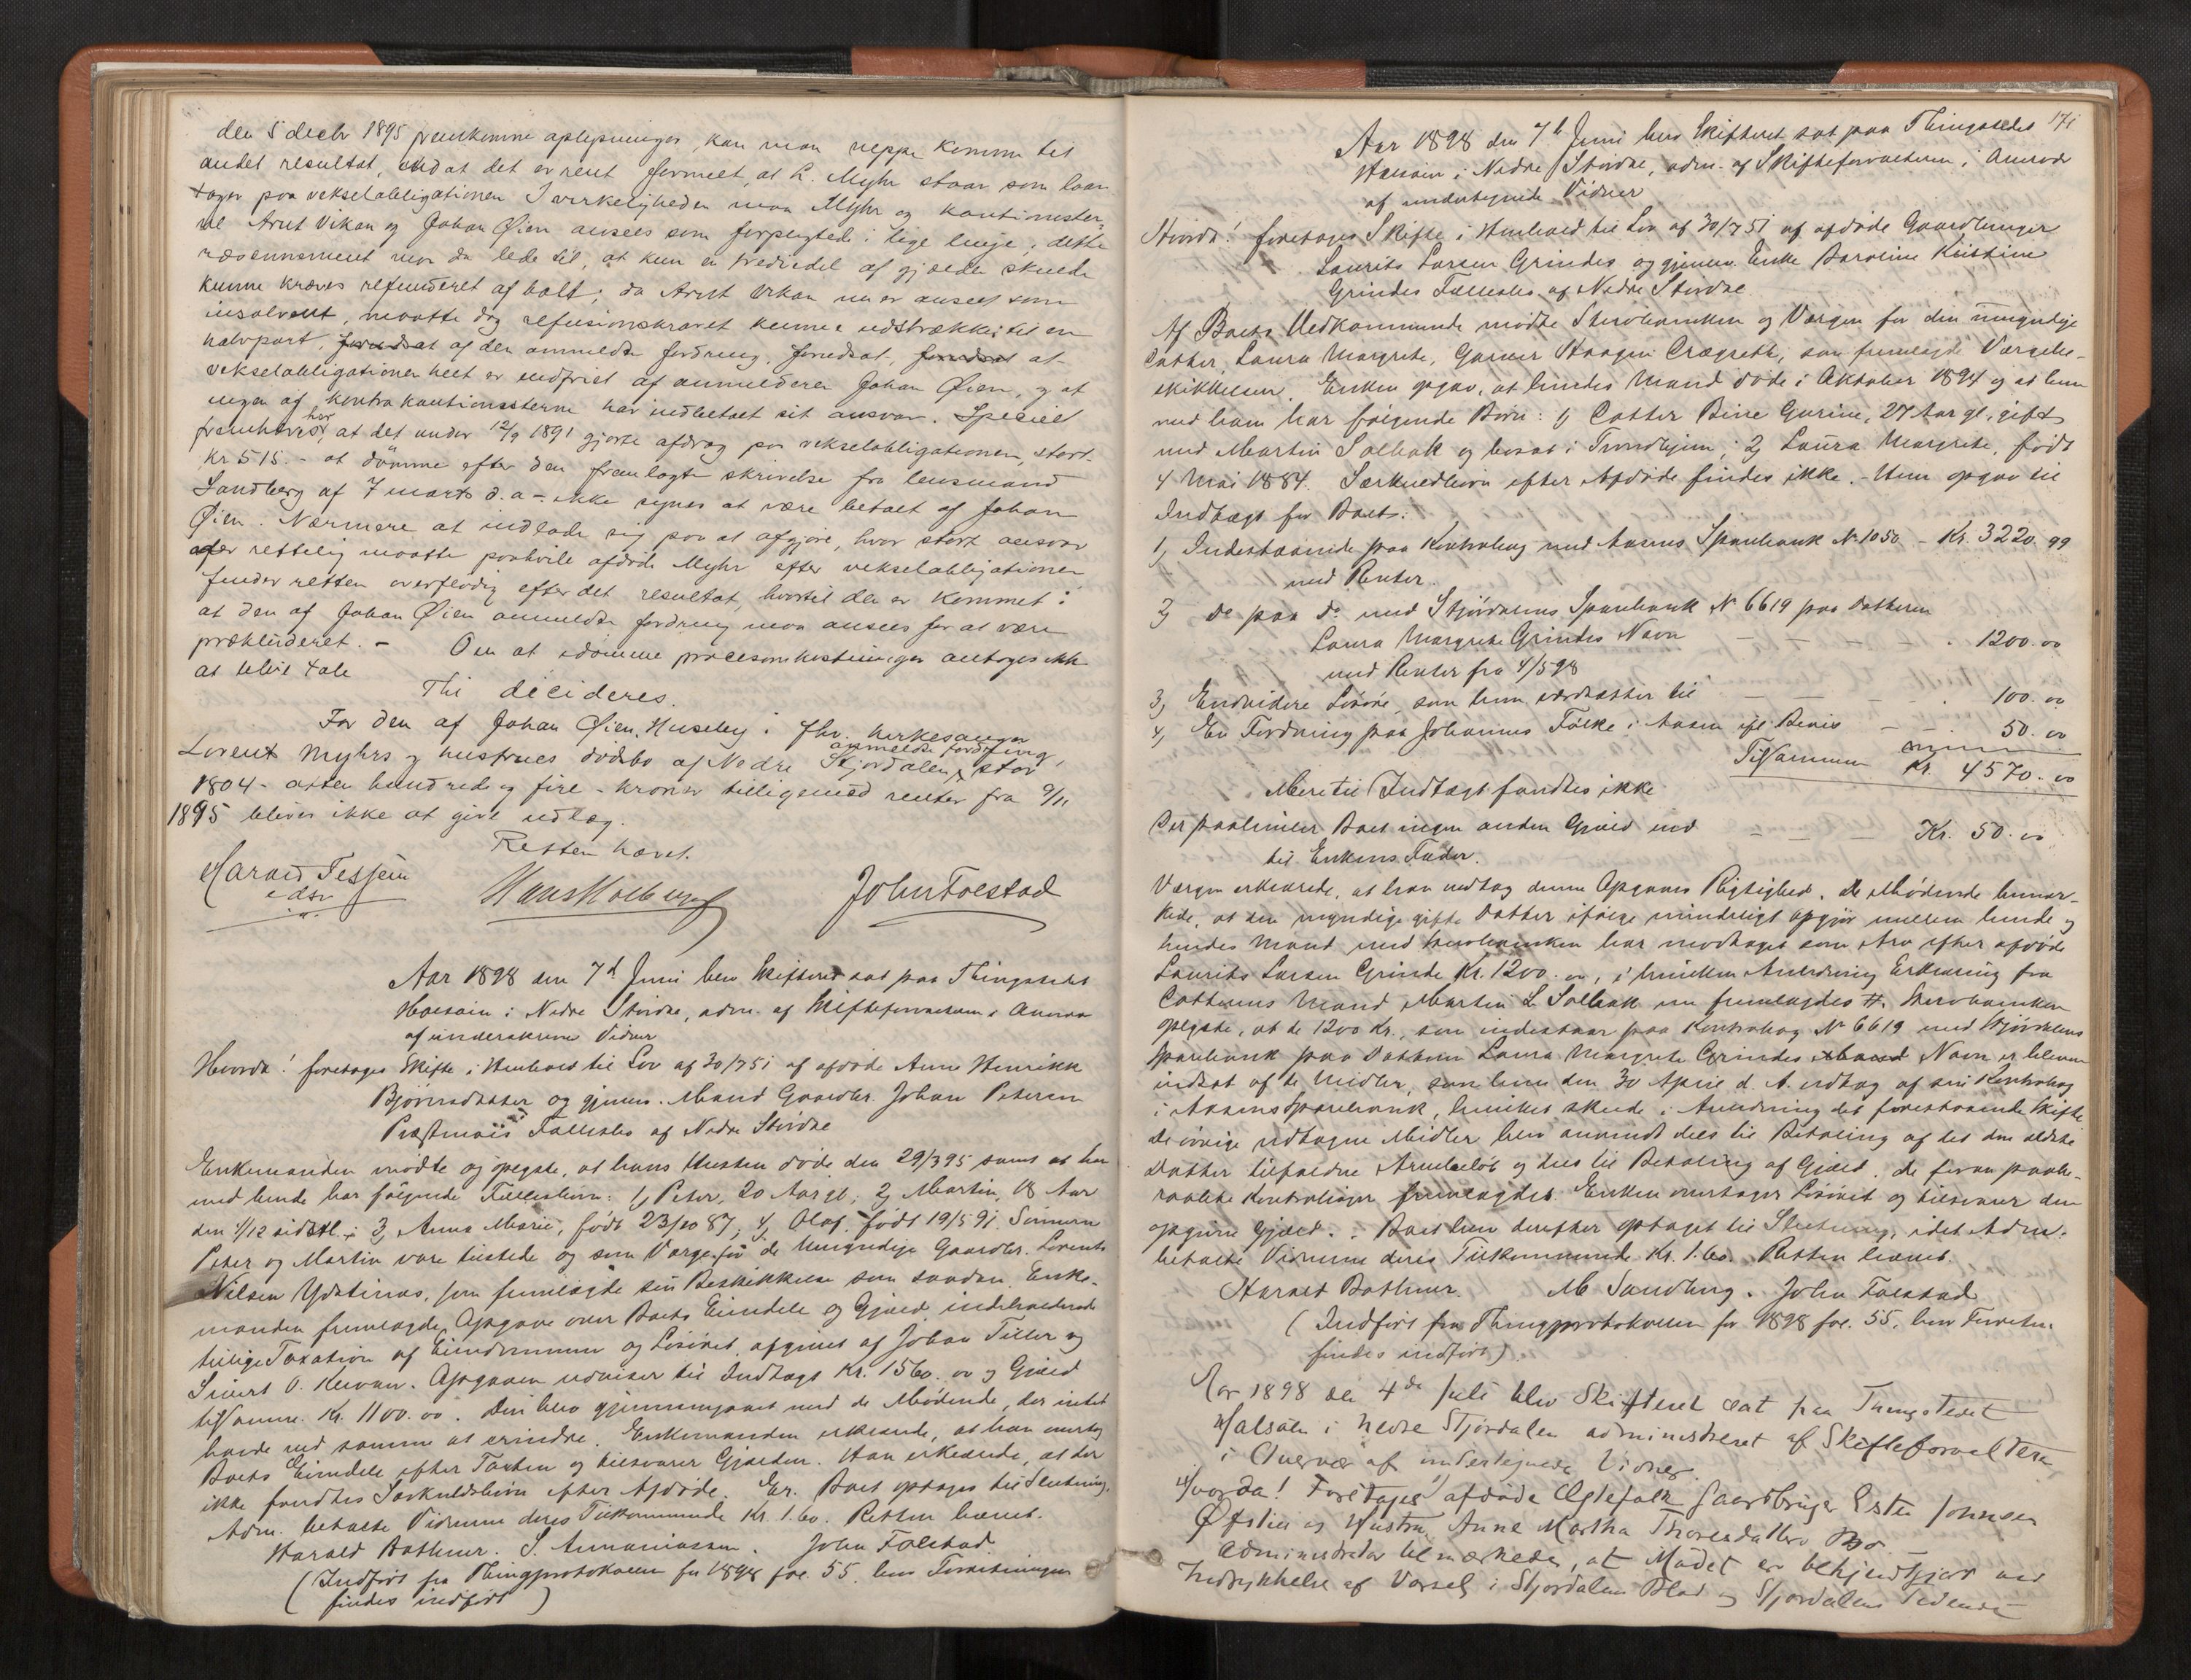 den 5 decbr 1895 fremkomne oplysninger, kan man neppe komme til
andet resultat, end at det er rent formelt, at L. Myhr staar som laan
tager paa vekselobligationen. I virkeligheden maa Myhr og kautionister-
ne Arnt Vikan og Johan Øien ansees som forpligtede i lige linje; dette
ræsonnement maa da lede til, at kun en trediedel af gjælden skulde
kunne kræves refunderet af boet; da Arnt Vikan nu er anseet som
insolvent, maatte dog refusionskravet kunne udstrækkes til en
halvpart, forudsat af den anmeldte fordring, forudsat, forudsat at
vekselobligationen helt er indfriet af anmelderen Johan Øien, og at
ingen af kontrakautionisterne har indbetalt sit ansvar. Specielt
fremhæves her, at det under 12/9 1891 gjorte afdrag paa vekselobligationen, stort
kr 515.- at dømme efter den fremlagte skrivelse fra lensmand
Sandberg af 7 marts d. a. - ikke synes at være betalt af Johan
Øien. Nærmere at indlade sig paa at afgjøre, hvor stort ansvar
der rettelig maatte paahvile afdøde Myhr efter vekselobligationen
finder retten overflødig efter det resultat, hvortil den er kommet:
at den af Johan Øien anmeldte fordring maa ansees for at være
prækluderet. - Om at idømme procesomkostninger antages ikke
at blive tale
Thi decideres.
For den af Johan Øien, Huseby i fhv. kirkesanger
Lorent Myhrs og hustrues dødsbo af Nedre Stjørdalen anmeldte fordring, stor
1804 - atten hundrede og fire - kroner tilligemed renter fra 9/11
1895 bliver ikke at give udlæg.
Retten hævet.
Harald Tessem
edsv
Hans Molberg
John Folstad
Aar 1898 den 7d Juni blev Skifteret sat paa Thingstedet
Halsøin i Nedre Stördal, adm. af Skifteforvalteren i Overvær
af underskrevne Vidner
Hvorda! foretoges Skifte i Henhold til Lov af 30/7 51 af afdöde Anne Henrikke
Björnsdatter og gjenlev. Mand Gaardbr. Johan Petersen
Præstmoes Fællesbo af Nedre Stördal
Enkemanden mödte og opgav, at hans Hustru döde den 29/3 95 samt at han
med hende har fölgende Fællesbörn: 1, Peter, 20 Aar gl.; 2, Martin, 18 Aar
den 4/12 sidstl.; 3, Anna Marie, födt 23/10 87; 4, Olaf, födt 19/5 91. Sönnerne
Peter og Martin vare tilstede og som Værge for de Umyndige Gaardbr. Lorents
Nilsen Ydstines, som fremlagde sin Beskikkelse som saadan. Enke-
manden fremlagde Opgave over Boets Eiendele og Gjæld indeholdende
tillige Taxation af Eiendommen og Lösöret, afgivet af Johan Tiller og
Sivert O. Kirvan. Opgaven udviser til Indtægt Kr. 1560.00 og Gjæld
tilsamm. Kr. 1100.00. Den blev gjennemgaaet med de Mödende, der intet
havde ved samme at erindre. Enkemanden erklærede, at han overtog
Boets Eiendele efter Taxten og tilsvarer Gjælden. Han erklærede, at der
ikke fandtes Særkuldsbörn efter Afdöde. Er. Boet optages til Slutning.
Adm. betalte Vidnerne deres Tilkommende Kr. 1.60. Retten hævet.
Harald Bothner. S. Annaniassen. John Folstad
(Indfört fra Thingprotokollen for 1898 fol. 55 hvor Forretningen
findes indfört)
171
Aar 1898 den 7d Juni blev Skifteret sat paa Thingstedet
Halsöin i Nedre Stördal, adm. af Skifteforvalteren i Overvær
af undertegnede Vidner
Hvorda! foretoges Skifte i Henhold til Lov af 30/7 51 af afdöde Gaardbruger
Laurits Larsen Grindes og gjenlev. Enke Baroline Kristine
Grindes Fællesbo af Nedre Stördal.
Af Boets Vedkommende mödte Sterboenken og Værgen for den umyndige
Datter, Laura Margrete, Gaardbr. Haagen, som fremlagde Værgebe-
skikkelsen. Enken opgav, at hendes Mand döde i Oktober 1894 og at hun
med ham har fölgende Börn: 1, Datter Gurine, 27 Aar gl., gift
med Martin Solbak og bosat i Trondhjem; 2, Laura Margrete, födt
4 Mai 1884. Særkuldbörn efter Afdöde findes ikke. - Hun opgav til
Indtægt for Boet:
1, Indestaaende paa Kontrabog med Aasens Sparebank No 1050 - Kr. 3220.99
med Renter.
2, Do paa do med Stjördalens Sparebank No 6619 paa Datteren
Laura Margrete Grindes Navn - - - . 1200.00
med Renter fra 4/5 98
3, Endvidere Lösöre, som hun værdsætter til - - . 100.00
4, En Fordring paa Johannes Fölke i Aasen efter Bevis - . 50.00
Tilsammen Kr. 4570.00
Mere til Indtægt fandtes ikke.
Der paahviler Boet ingen anden Gjæld end - - Kr. 50.00
til Enkens Fader.
Værgen erklærede, at han vedtog denne Opgaves Rigtighed. De Mödende bemær-
kede, at den myndige gifte Datter ifölge mindeligt Opgjör mellem hende og
hendes Mand med Sterboenken har modtaget som Arv efter afdöde
Laurits Larsen Grinde Kr. 1200.00, i hvilken Anledning Erklæring fra
Datterens Mand Martin L. Solbak nu fremlagdes #. Sterboenken
oplyste, at de 1200 Kr., som indestaar paa Kontrabog No 6619 med Stjördalens
Sparebank paa Datteren Laura Margrete Grindes Mand Navn er bleven
indsat af de Midler, som hun den 30 April d. A. udtog af sin Kontrabog
i Aasens Sparebank, hvilket skede i Anledning det forestaaende Skifte.
De övrige udtagne Midler blev anvendt dels til Betaling af det den ældste
Datter tilfaldne Arvebelöb og dels til Betaling af Gjæld. De foran paabe-
raabte Kontraböger fremlagdes. Enken overtager Lösöret og tilsvarer den
opgivne Gjæld. : Boet blev derefter optaget til Slutning, idet Adm.
betalte Vidnerne deres Tilkommende Kr. 1.60. Retten hævet.
Harald Bothner. M Sandberg. John Folstad
(Indfört fra Thingprotokollen for 1898 fol. 55, hvor Forretn.
findes indfört).
Aar 1898 den 4de juli blev Skifteret sat paa Thingstedet
Halsøen i nedre Stjørdalen administreret af Skifteforvalteren
i Overvær af undertegnede Vidner.
Hvorda! Foretages 1) afdøde Ægtefolk Gaardbruger Esten Johnsen
Øfstien og Hustru Anne Martha Thoresdatters Bo.
Administrator bemærkede, at Mødet er bekjendtgjort ved
Indrykkelse af Varsel i Stjørdalens Blad og Stjørdalens Tidende